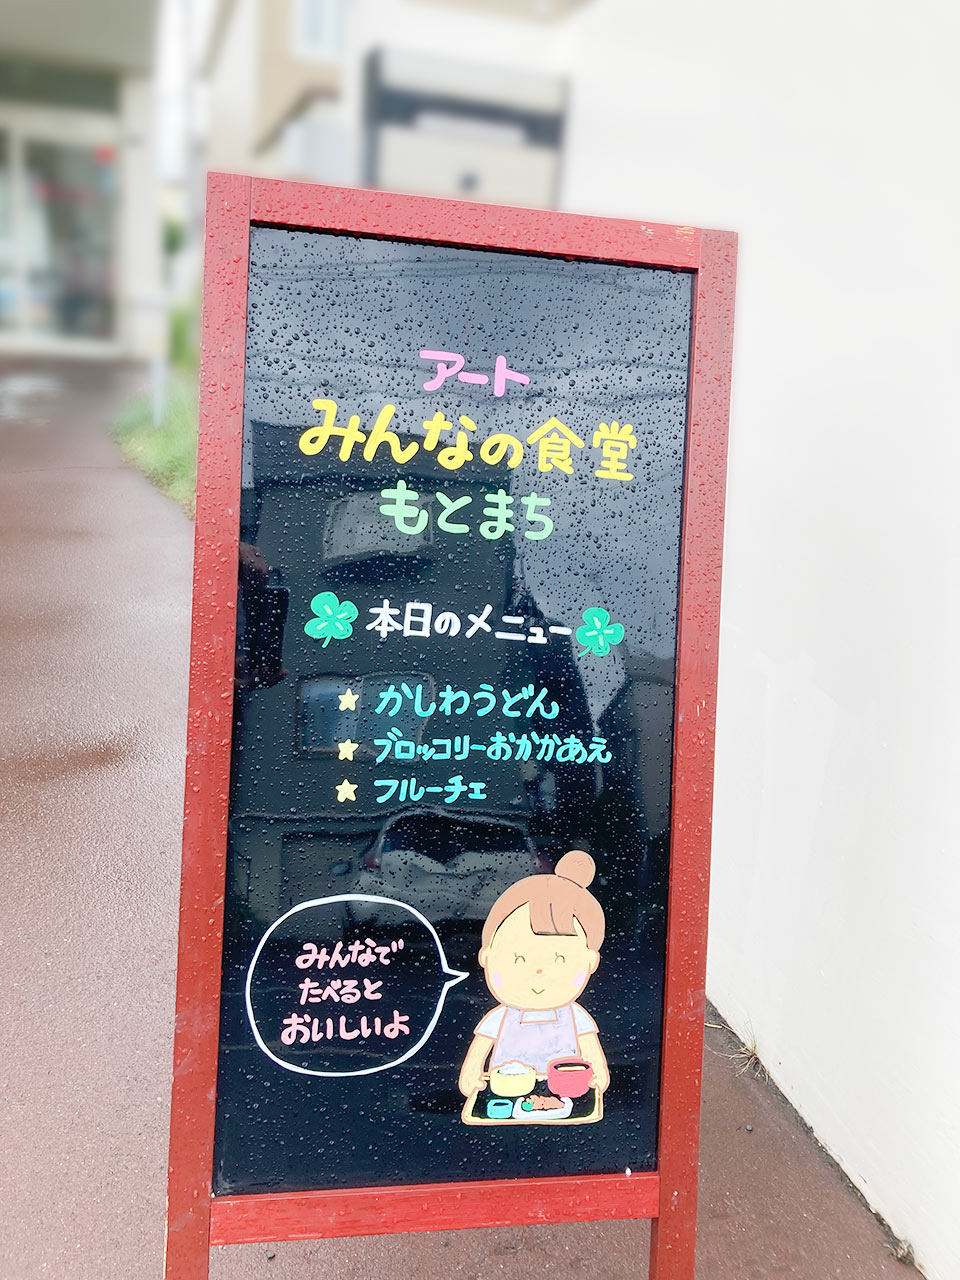 アート
みんなの食堂
もとまち
本日のメニュー
★ かしわうどん
★ ブロッコリーおかかあえ
★ フルーチェ
みんなで
たべると
おいしいよ